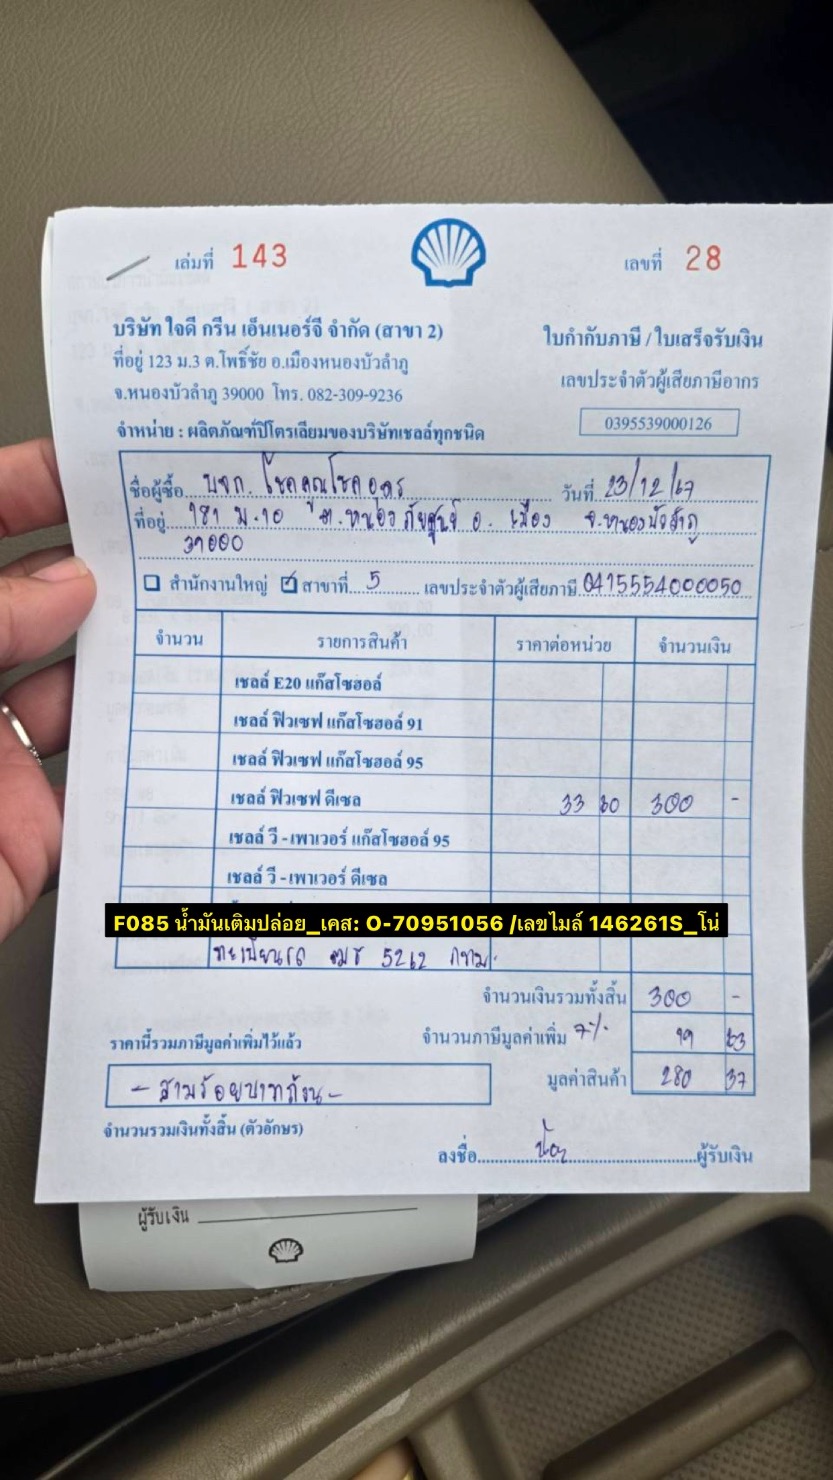 เล่มที่ 143
เลขที่ 28
บริษัท ใจดี กรีน เอ็นเนอร์จี จำกัด (สาขา 2)
ที่อยู่ 123 ม.3 ต.โพธิ์ชัย อ.เมืองหนองบัวลำภู
จ.หนองบัวลำภู 39000 โทร. 082-309-9236
จำหน่าย : ผลิตภัณฑ์ปิโตรเลียมของบริษัทเชลล์ทุกชนิด
ใบกำกับภาษี / ใบเสร็จรับเงิน
เลขประจำตัวผู้เสียภาษีอากร
0395539000126
ชื่อผู้ซื้อ บจก. โชคคูณโชคอุดร วันที่ 23/12/67
ที่อยู่ 181 ม.10 ต.หนองภัยศูนย์ อ. เมือง จ.หนองบัวลำภู
39000
สำนักงานใหญ่ สาขาที่ 5 เลขประจำตัวผู้เสียภาษี 0415554000050
จำนวน รายการสินค้า ราคาต่อหน่วย จำนวนเงิน
เชลล์ E20 แก๊สโซฮอล์
เชลล์ ฟิวเซฟ แก๊สโซฮอล์ 91
เชลล์ ฟิวเซฟ แก๊สโซฮอล์ 95
เชลล์ ฟิวเซฟ ดีเซล 33 300 -
เชลล์ วี - เพาเวอร์ แก๊สโซฮอล์ 95
เชลล์ วี - เพาเวอร์ ดีเซล
F085 น้ำมันเติมปล่อย_เคส: O-70951056 /เลขไมล์ 146261S_โน่
ทะเบียนรถ 5262 กทม.
จำนวนเงินรวมทั้งสิ้น 300 -
ราคานี้รวมภาษีมูลค่าเพิ่มไว้แล้ว
จำนวนภาษีมูลค่าเพิ่ม 7% 19 63
มูลค่าสินค้า 280 37
- สามร้อยบาทถ้วน -
จำนวนรวมเงินทั้งสิ้น (ตัวอักษร)
ลงชื่อ ผู้รับเงิน
ผู้รับเงิน